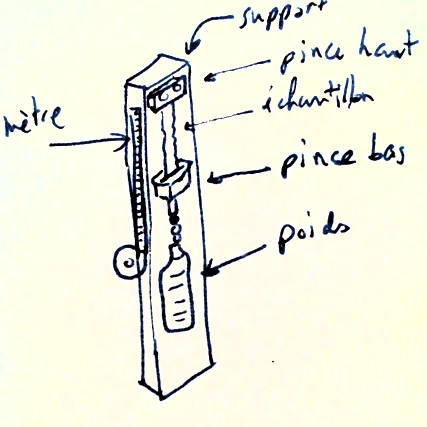 support
pince haut
échantillon
mètre
pince bas
poids